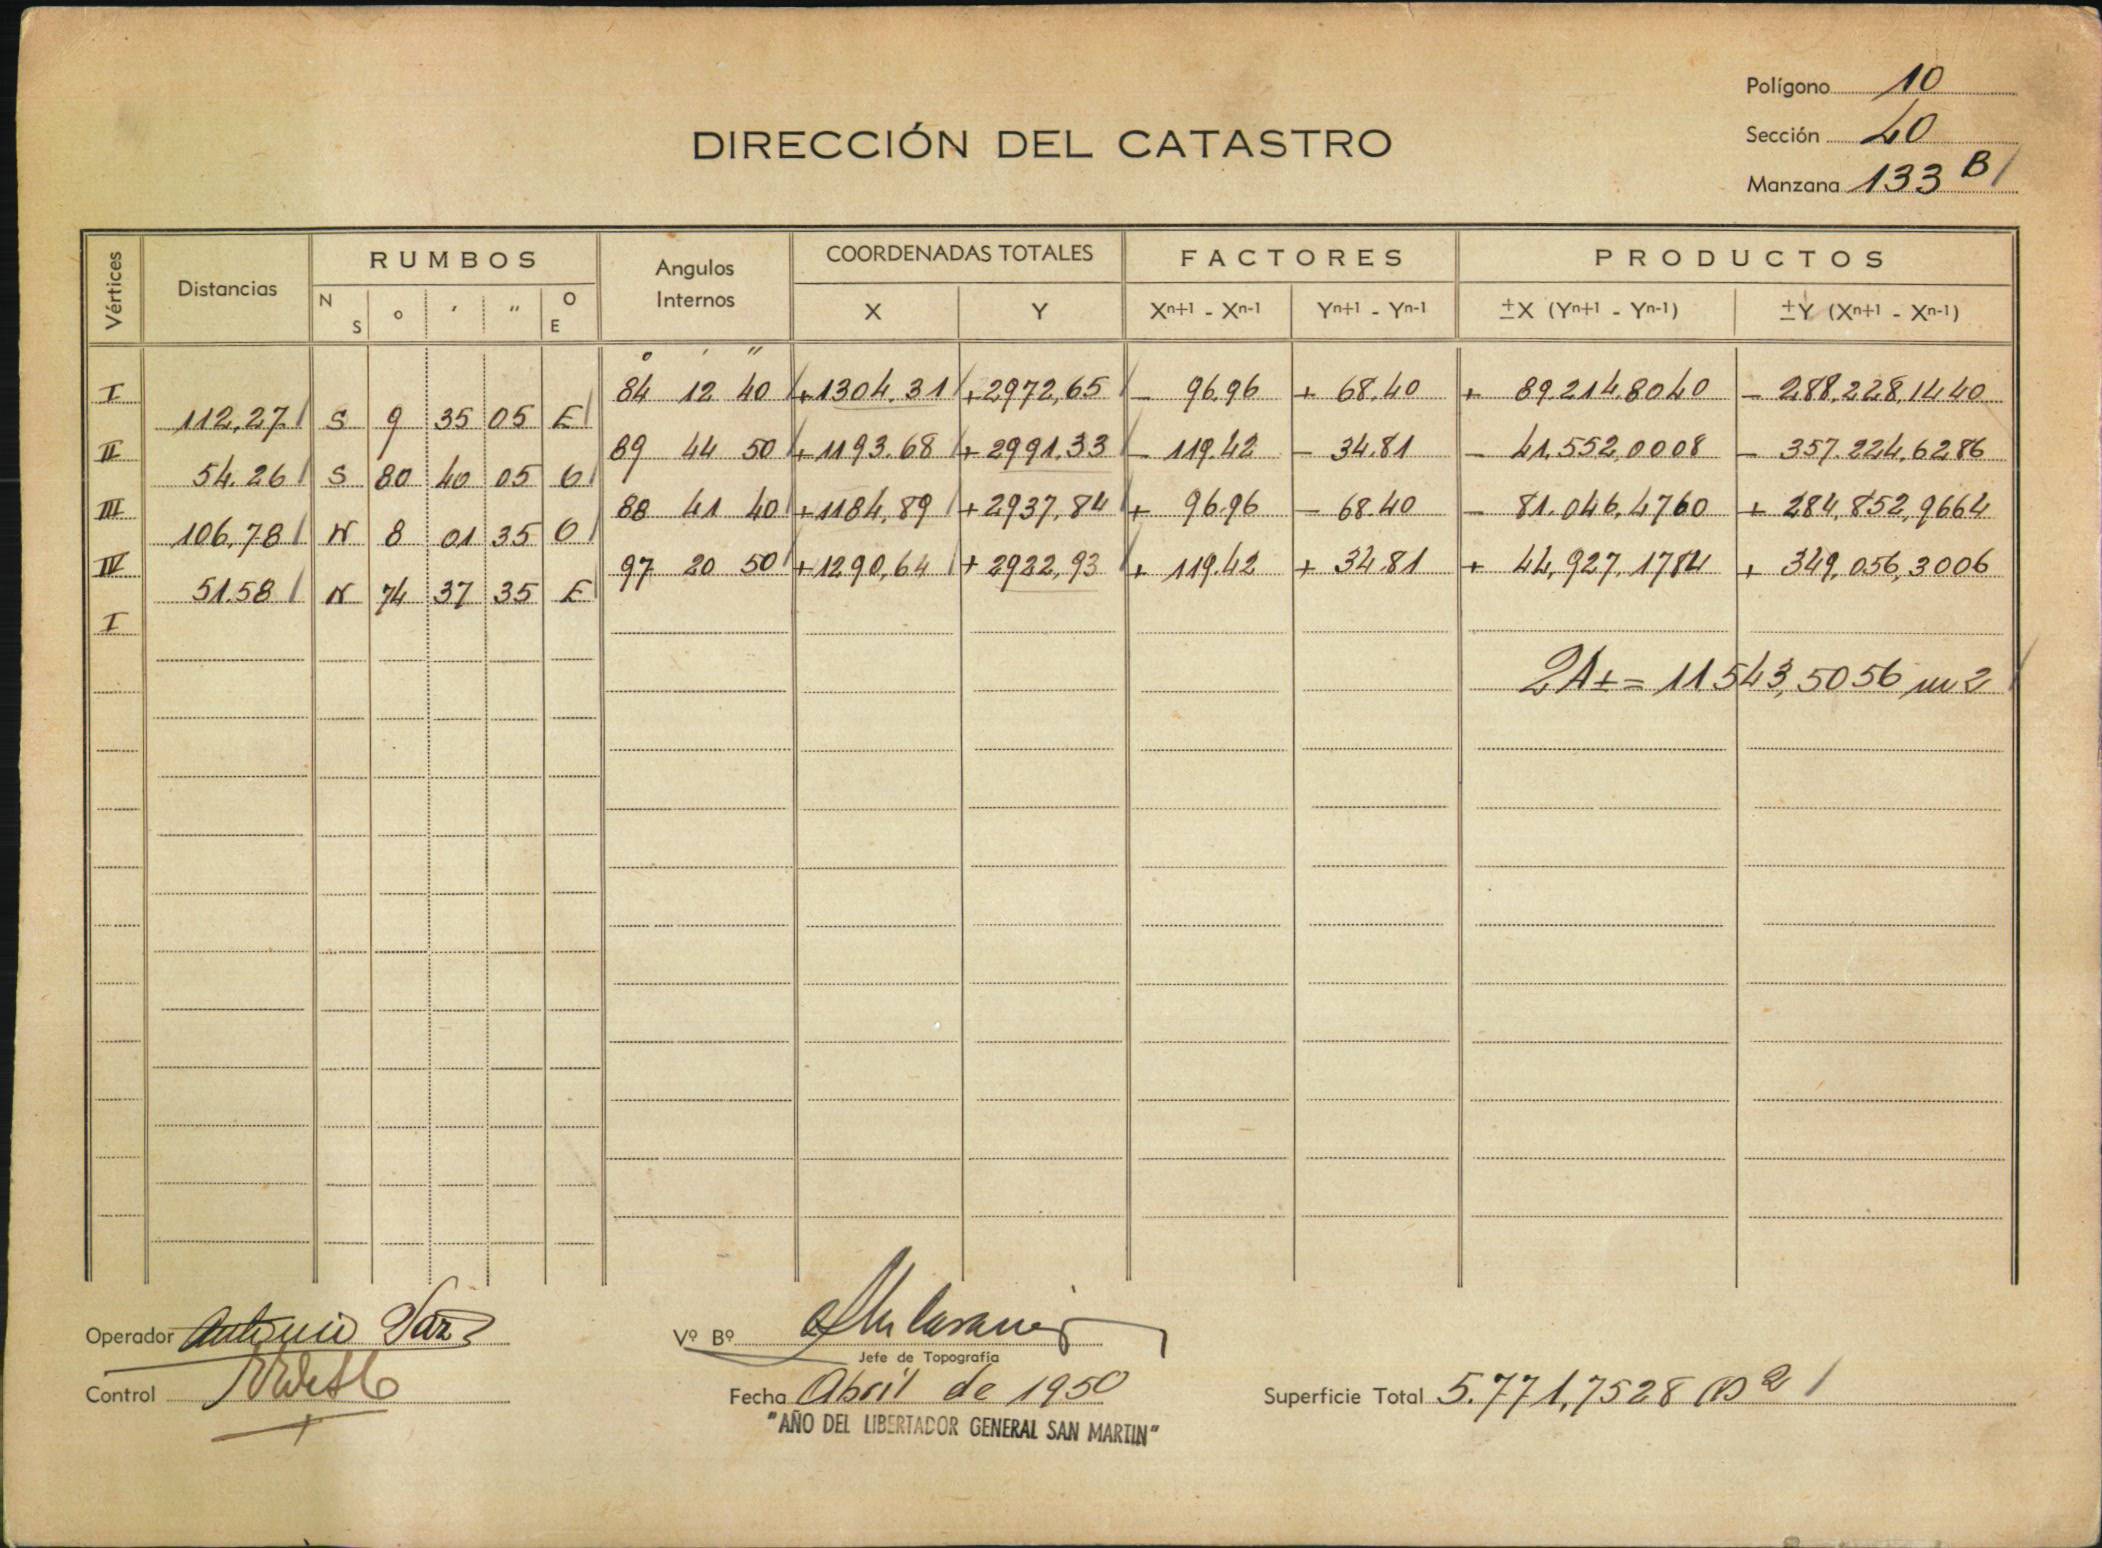 Polígono 10
DIRECCIÓN DEL CATASTRO
Sección 40
Manzana 133 B/
Vértices Distancias RUMBOS Angulos Internos COORDENADAS TOTALES FACTORES PRODUCTOS
N S o ′ ″ O E X Y Xⁿ⁺¹ - Xⁿ⁻¹ Yⁿ⁺¹ - Yⁿ⁻¹ ±X (Yⁿ⁺¹ - Yⁿ⁻¹) ±Y (Xⁿ⁺¹ - Xⁿ⁻¹)
o ′ ″
I 84 12 40 +1304.31 +2972,65 - 96.96 + 68.40 + 89.214.8040 - 288.228,1440
112,27 S 9 35 05 E
II 89 44 50 +1193.68 +2991.33 - 119.42 - 34.81 - 41.552,0008 - 357.224,6286
54.26 S 80 40 05 O
III 88 41 40 +1184,89 +2937,84 + 96.96 - 68.40 - 81.046,4760 + 284,852,9664
106,78 N 8 01 35 O
IV 97 20 50 +1290,64 +2922,93 + 119.42 + 34.81 + 44,927,1784 + 349,056,3006
51.58 N 74 37 35 E
I
2A± = 11543,5056 m2
Operador Antonio
Vº Bº
Jefe de Topografía
Control
Fecha Abril de 1950
Superficie Total 5.771,7528 m2
"AÑO DEL LIBERTADOR GENERAL SAN MARTIN"